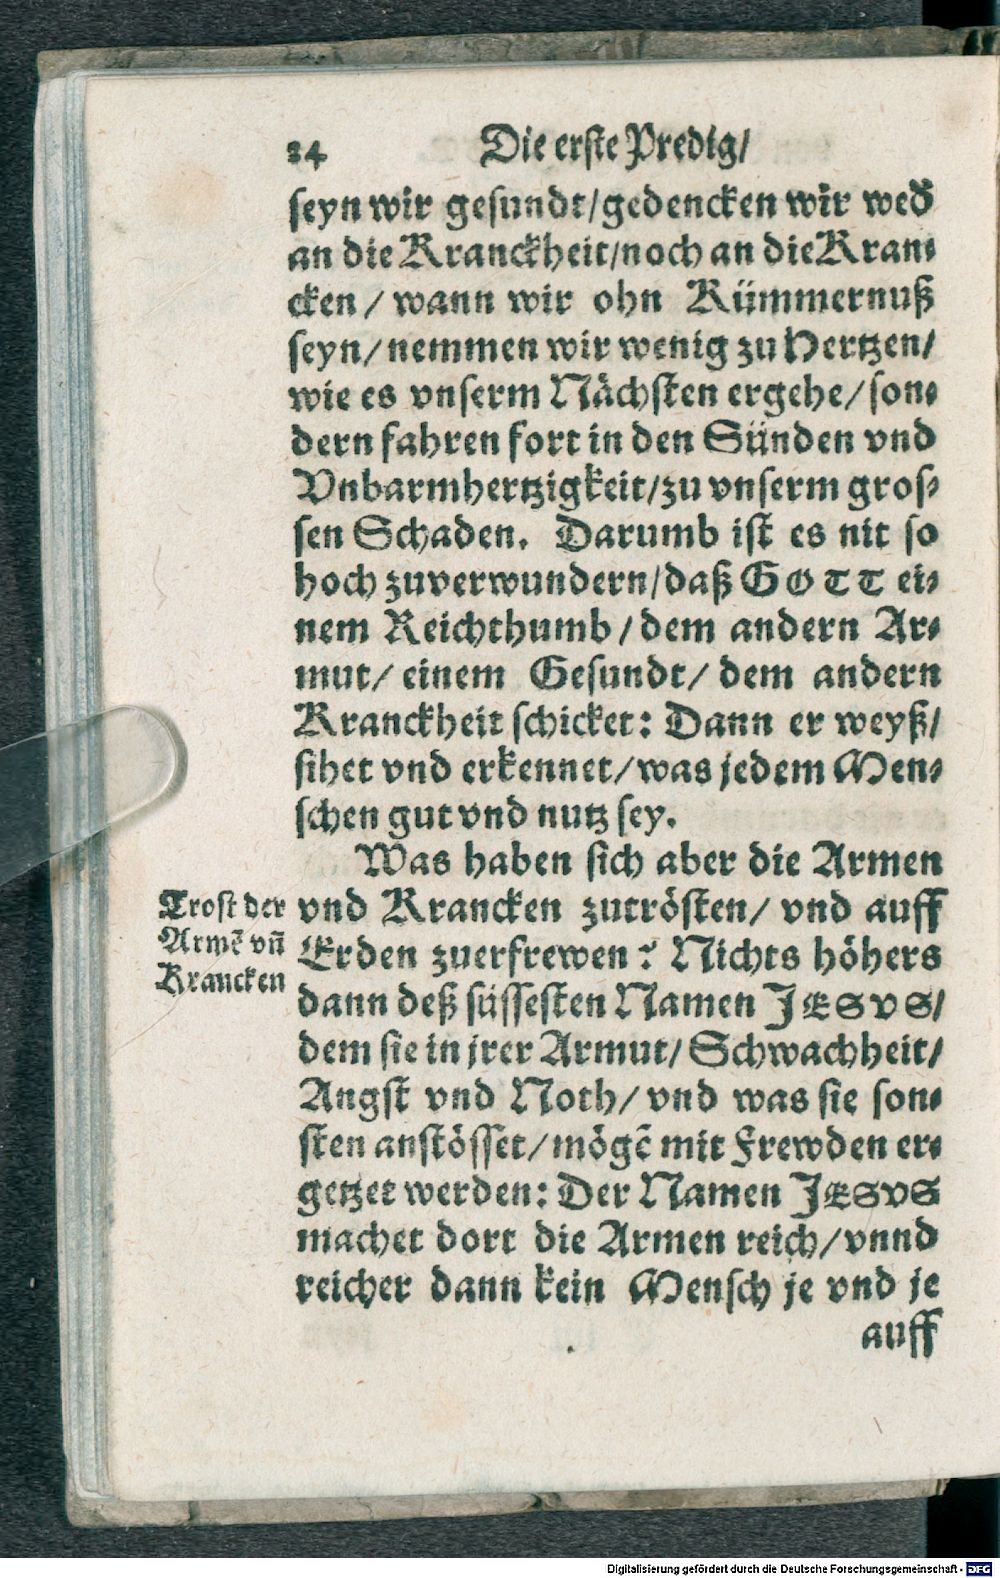 24 Die erste Predig/
seyn wir gesundt/gedencken wir wed̃
an die Kranckheit/noch an die Kran⸗
cken / wann wir ohn Kümmernuß
seyn/nemmen wir wenig zu Hertzen/
wie es vnserm Nächsten ergehe/son⸗
dern fahren fort in den Sünden vnd
Vnbarmhertzigkeit/zu vnserm gros⸗
sen Schaden. Darumb ist es nit so
hoch zuverwundern/daß GOTT ei⸗
nem Reichthumb/dem andern Ar⸗
mut/ einem Gesundt/ dem andern
Kranckheit schicket: Dann er weyß/
sihet vnd erkennet/was jedem Men⸗
schen gut vnd nutz sey.
Was haben sich aber die Armen
Trost der
Armẽ vñ
Krancken
vnd Krancken zutrösten/ vnd auff
Erden zuerfrewen? Nichts höhers
dann deß süssesten Namen JESVS/
dem sie in jrer Armut/ Schwachheit/
Angst vnd Noth/ vnd was sie son⸗
sten anstösset/mögẽ mit Frewden er⸗
getzet werden: Der Namen JESVS
machet dort die Armen reich/vnnd
reicher dann kein Mensch je vnd je
auff
Digitalisierung gefördert durch die Deutsche Forschungsgemeinschaft - DFG